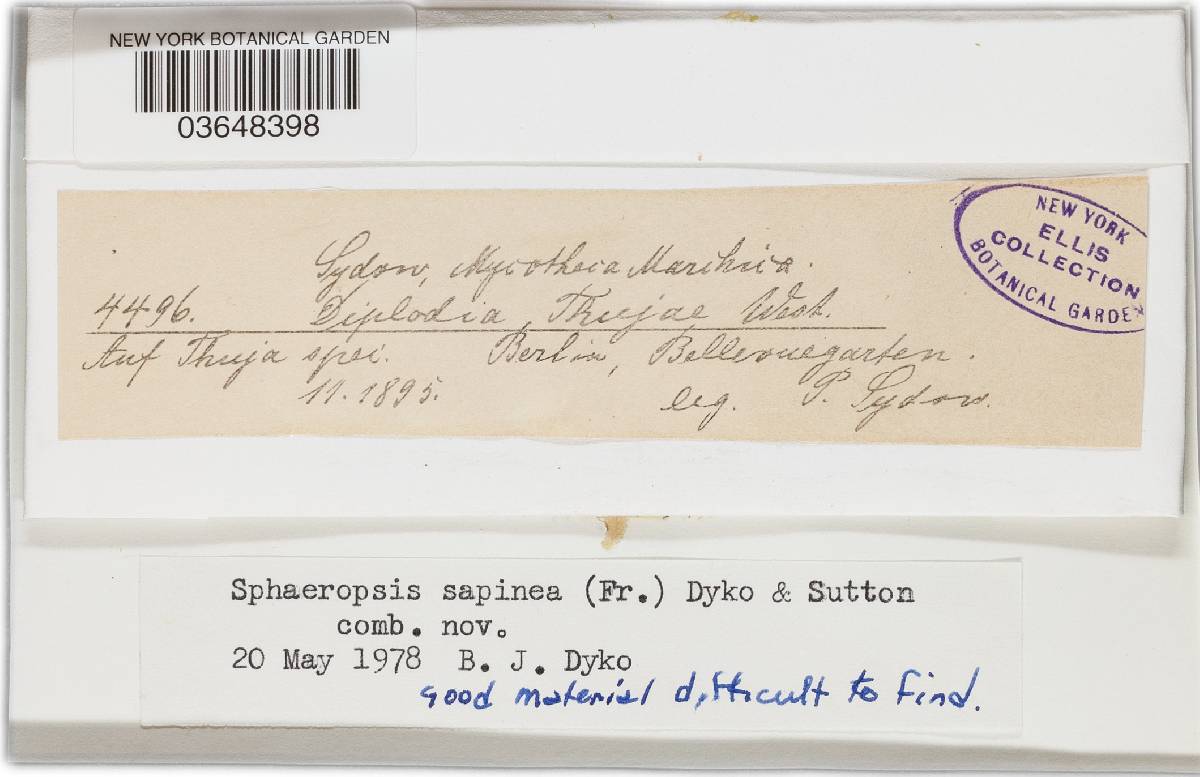 NEW YORK BOTANICAL GARDEN
03648398
NEW YORK
ELLIS
COLLECTION
BOTANICAL GARDE
Sydow, Mycotheca Marchica.
4496. Diplodia Thujae West.
Auf Thuja spei. Berlin, Bellevuegarten.
11.1895. leg. P. Sydow.
Sphaeropsis sapinea (Fr.) Dyko & Sutton
comb. nov.
20 May 1978 B. J. Dyko
Good material difficult to find.